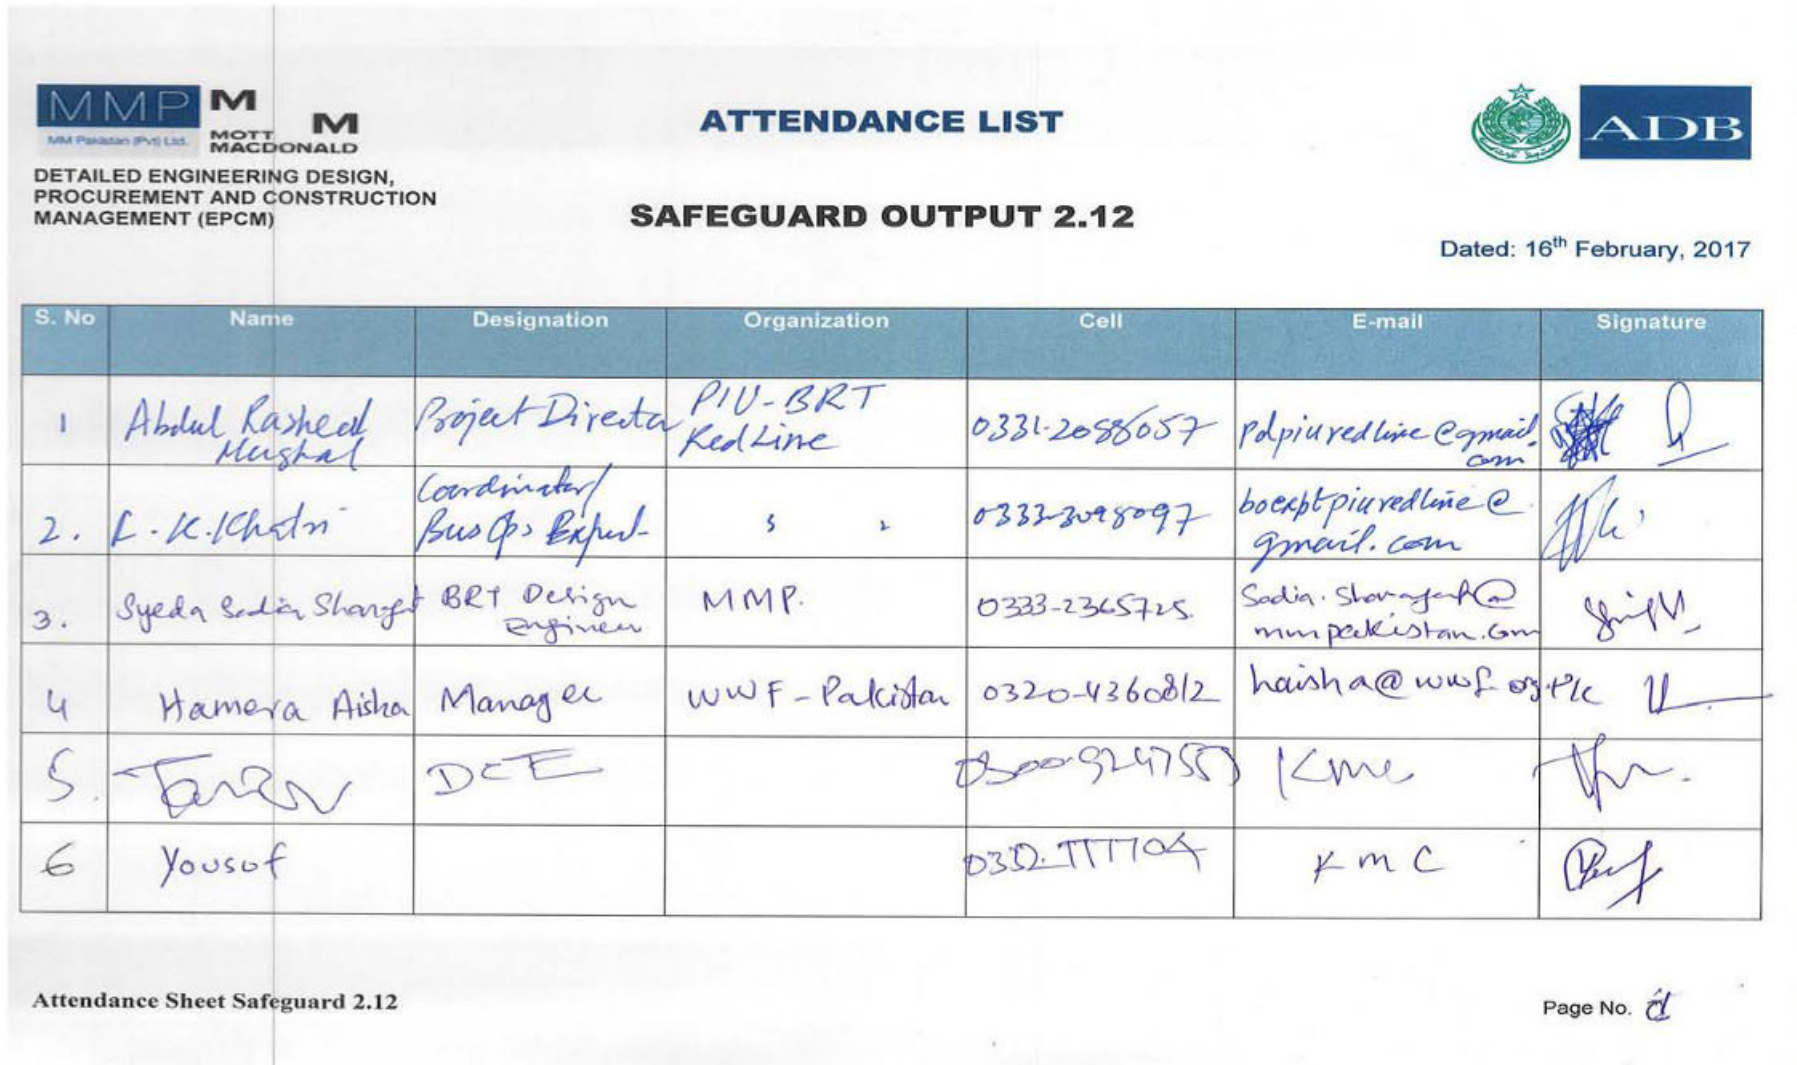 MMP
MM Pakistan (Pvt) Ltd.
M M
MOTT
MACDONALD
DETAILED ENGINEERING DESIGN,
PROCUREMENT AND CONSTRUCTION
MANAGEMENT (EPCM)
ATTENDANCE LIST
SAFEGUARD OUTPUT 2.12
ADB
Dated: 16th February, 2017
S. No Name Designation Organization Cell E-mail Signature
1 Abdul Rasheed Mughal Project Director PIU-BRT Red Line 0331-2088057 pdpiuredline@gmail.com
2. K.Khatri Coordinator/ Bus Ops Expert 0333-3098097 boexptpiuredline@gmail.com
3. Syeda Sadia BRT Design Engineer MMP. 0333-2365725 mmpakistan.com
4 Hamera Aisha Manager WWF-Pakistan 0320-4360812 haisha@wwf.org.pk
5. DCE KMC
6 Yousuf KMC
Attendance Sheet Safeguard 2.12
Page No.